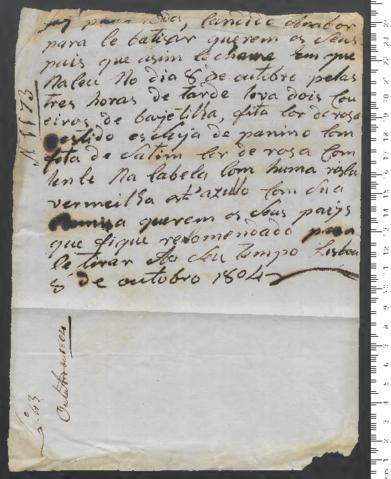 para roda,
para le batizar querem os seus
pais que asim le chame em que
Naseu No dia 8 de outibro pelas
tres horas de tarde leva dois cou
eiros de baietilha, fita cor de rosa
bestido es de panino com
fita de Setim cor de rosa com
Na Cabesa com huma
vermeilha azul com hũa
querem os seus pais
que fique recomendado para
le tirar Ao seu tempo Lisboa
8 de outobro 1804
N 1573
Nº 43
Outubro 1804